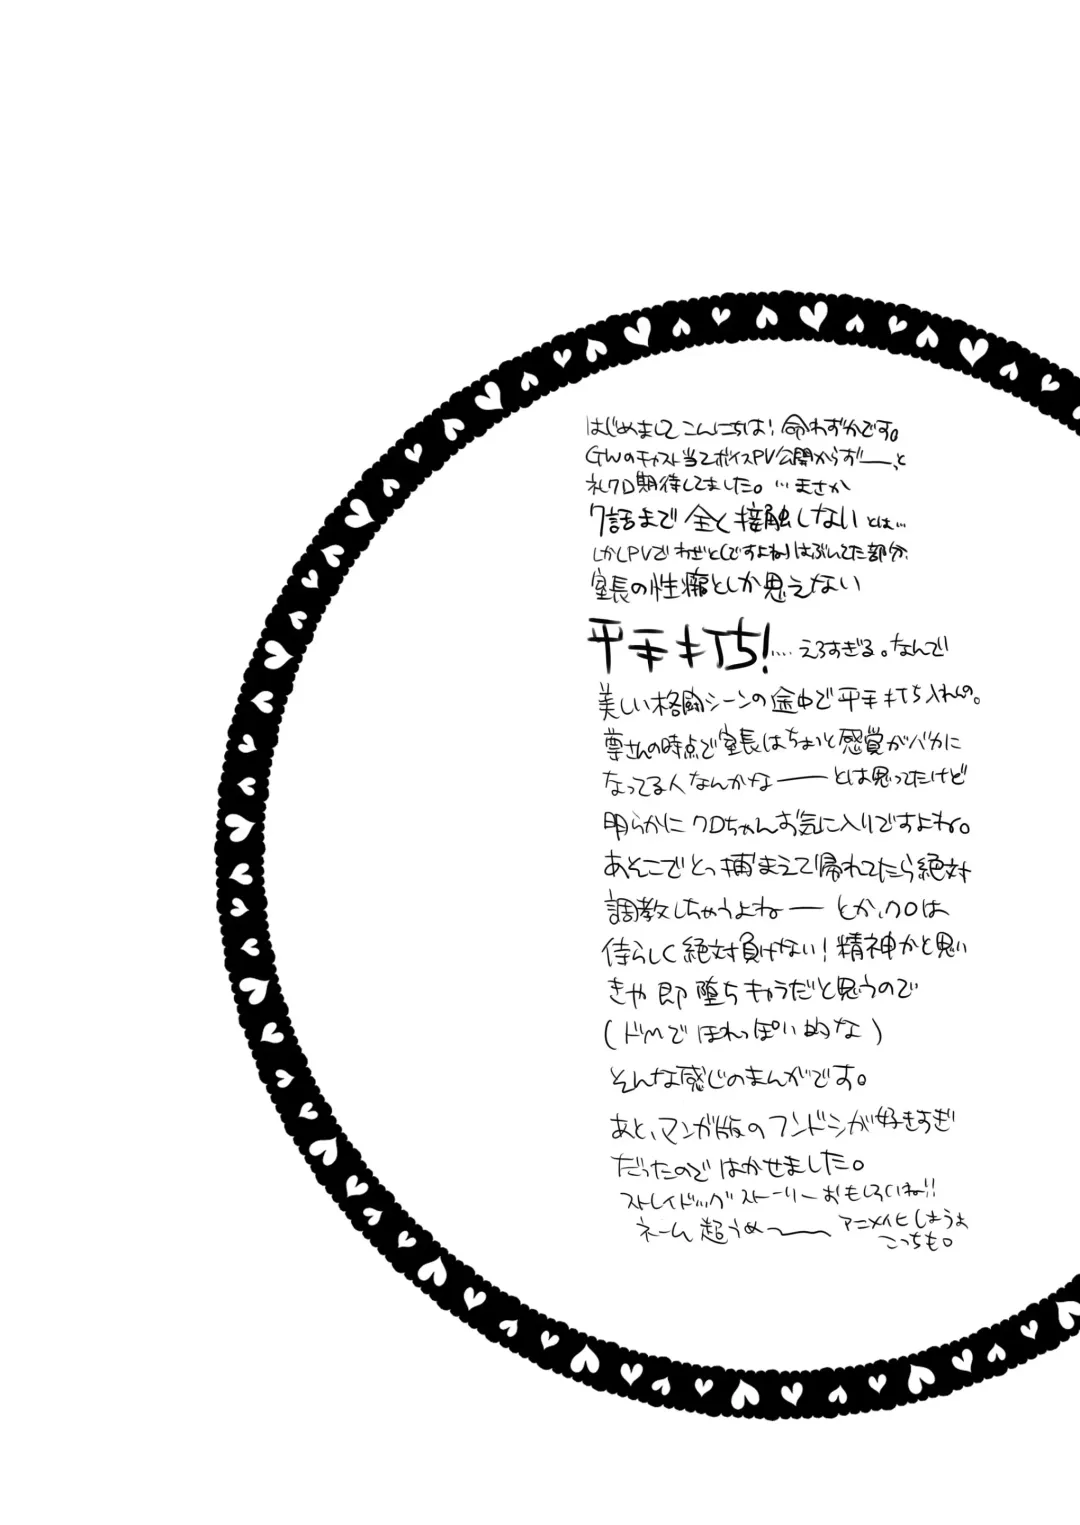 はじめましてこんにちは! 命わずかです。
GWのキャスト当てボイスPV公開からずーーっと
礼クロ期待してました。…まさか
7話まで全と接触しないとは…
しかしPVでわざと(ですよね)はぶいてた部分、
室長の性癖としか思えない
平手打ち!…えろすぎる。なんで
美しい格闘シーンの途中で平手打ち入れんの。
尊さんの時点で室長はちょいと感覚がバカに
なってる人なんかなーーとは思ってたけど
明らかにクロちゃんお気に入りですよね。
あそこでとっ捕まえて帰れてたら絶対
調教しちゃうよねーーとか、クロは
侍らしく絶対負けない!精神かと思い
きや即堕ちキャラだと思うので
(ドMでほれっぽい的な)
そんな感じのまんがです。
あと、マンガ版のフンドシが好きすぎ
だったのではかせました。
ストレイドッグストーリーおもしろいね!!
ネーム超うめ〜〜 アニメイヒしようよ
こっちも。